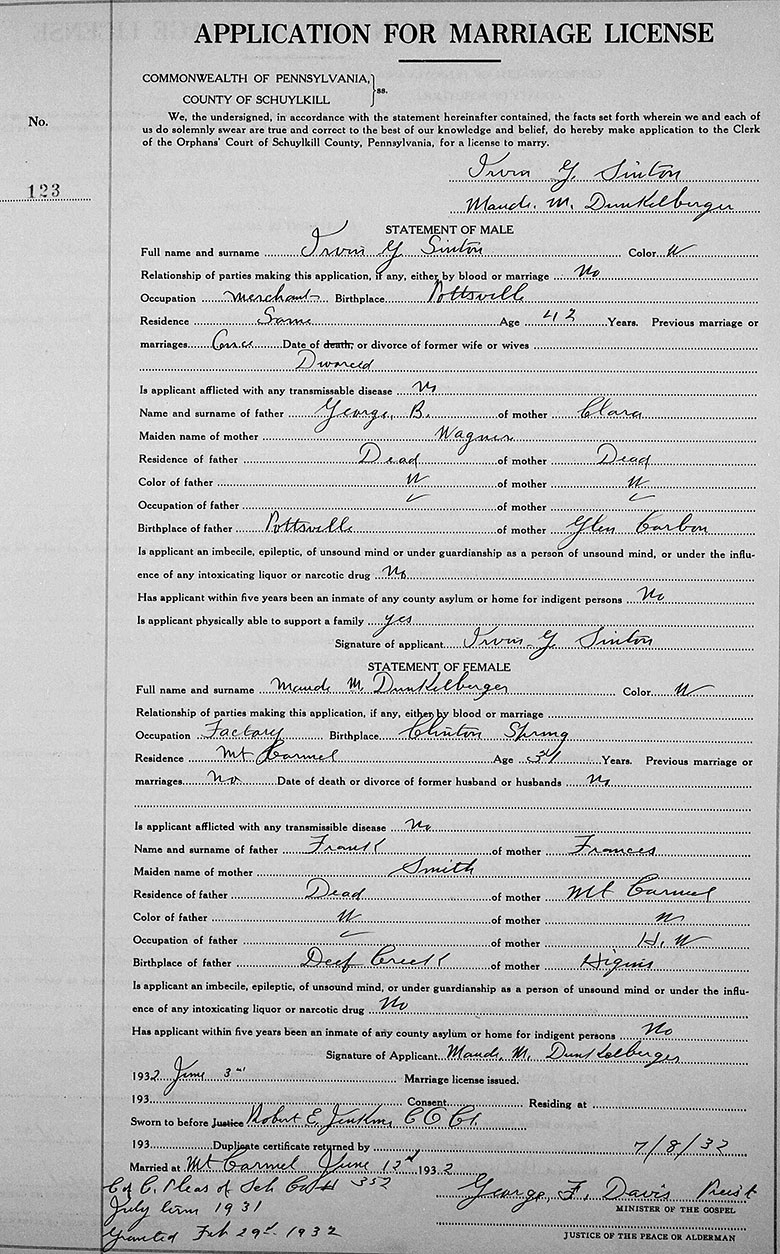 APPLICATION FOR MARRIAGE LICENSE
COMMONWEALTH OF PENNSYLVANIA,
COUNTY OF SCHUYLKILL } ss.
No.
123
We, the undersigned, in accordance with the statement hereinafter contained, the facts set forth wherein we and each of
us do solemnly swear are true and correct to the best of our knowledge and belief, do hereby make application to the Clerk
of the Orphans' Court of Schuylkill County, Pennsylvania, for a license to marry.
Irvin G. Sinton
Maude. M. Dunkelberger
STATEMENT OF MALE
Full name and surname Irvin G Sinton Color W
Relationship of parties making this application, if any, either by blood or marriage No
Occupation Merchant Birthplace Pottsville
Residence Same Age 42 Years. Previous marriage or
marriages Once Date of death, or divorce of former wife or wives
Divorced
Is applicant afflicted with any transmissable disease No
Name and surname of father George, B. of mother Clara
Maiden name of mother Wagner
Residence of father Dead of mother Dead
Color of father W of mother W
Occupation of father ✓ of mother ✓
Birthplace of father Pottsville of mother Glen Carbon
Is applicant an imbecile, epileptic, of unsound mind or under guardianship as a person of unsound mind, or under the influ-
ence of any intoxicating liquor or narcotic drug No
Has applicant within five years been an inmate of any county asylum or home for indigent persons No
Is applicant physically able to support a family yes
Signature of applicant Irvin. G. Sinton
STATEMENT OF FEMALE
Full name and surname Maude M. Dunkelberger Color W
Relationship of parties making this application, if any, either by blood or marriage
Occupation Factory Birthplace Clinton Spring
Residence Mt Carmel Age Years. Previous marriage or
marriages No Date of death or divorce of former husband or husbands No
Is applicant afflicted with any transmissible disease No
Name and surname of father Frank of mother Frances
Maiden name of mother Smith
Residence of father Dead of mother Mt Carmel
Color of father W of mother W
Occupation of father ✓ of mother H. W
Birthplace of father Deep Creek of mother Higins
Is applicant an imbecile, epileptic, of unsound mind, or under guardianship as a person of unsound mind or under the influ-
ence of any intoxicating liquor or narcotic drug No
Has applicant within five years been an inmate of any county asylum or home for indigent persons No
Signature of Applicant Maude, M. Dunkelberger
1932 June 3rd Marriage license issued.
193 Consent Residing at
Sworn to before Justice Robert E. Jenkins C O Ct.
193 Duplicate certificate returned by 7/8/32
Married at Mt Carmel June 12th 1932
C of C. Pleas of Sch Co # 352
July term 1931
Granted Feb 29th 1932
George, F. Davis Priest
MINISTER OF THE GOSPEL
JUSTICE OF THE PEACE OR ALDERMAN